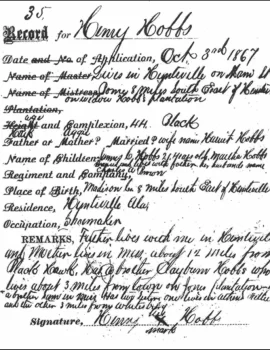 35
Record for Henry Hobbs
Date and No of Application, Oct 3rd 1867
Name of Master, Lives in Huntsville on Main St
Name of Mistress, 8 miles South East of
Hobbs plantation
Plantation,
Height and Complexion, 44. Black
Father or Mother? Married? wife name Harriet Hobbs
Name of Children, Hobbs 21 years old, Martha Hobbs
lives with father, her husbands name
Regiment and Company,
Place of Birth, Madison Co 8 miles South East of Huntsville
Residence, Huntsville Ala,
Occupation, Shoemaker
REMARKS, Father lives with me in Huntsville
and Mother lives in Miss, about 12 miles from
Black Hawk, Has a brother Clayburn Hobbs who
lives about 3 miles from town on plantation
a brother Sam in Miss Has two sisters one lives on
and the other 3 miles from
Signature, Henry his Hobbs
mark